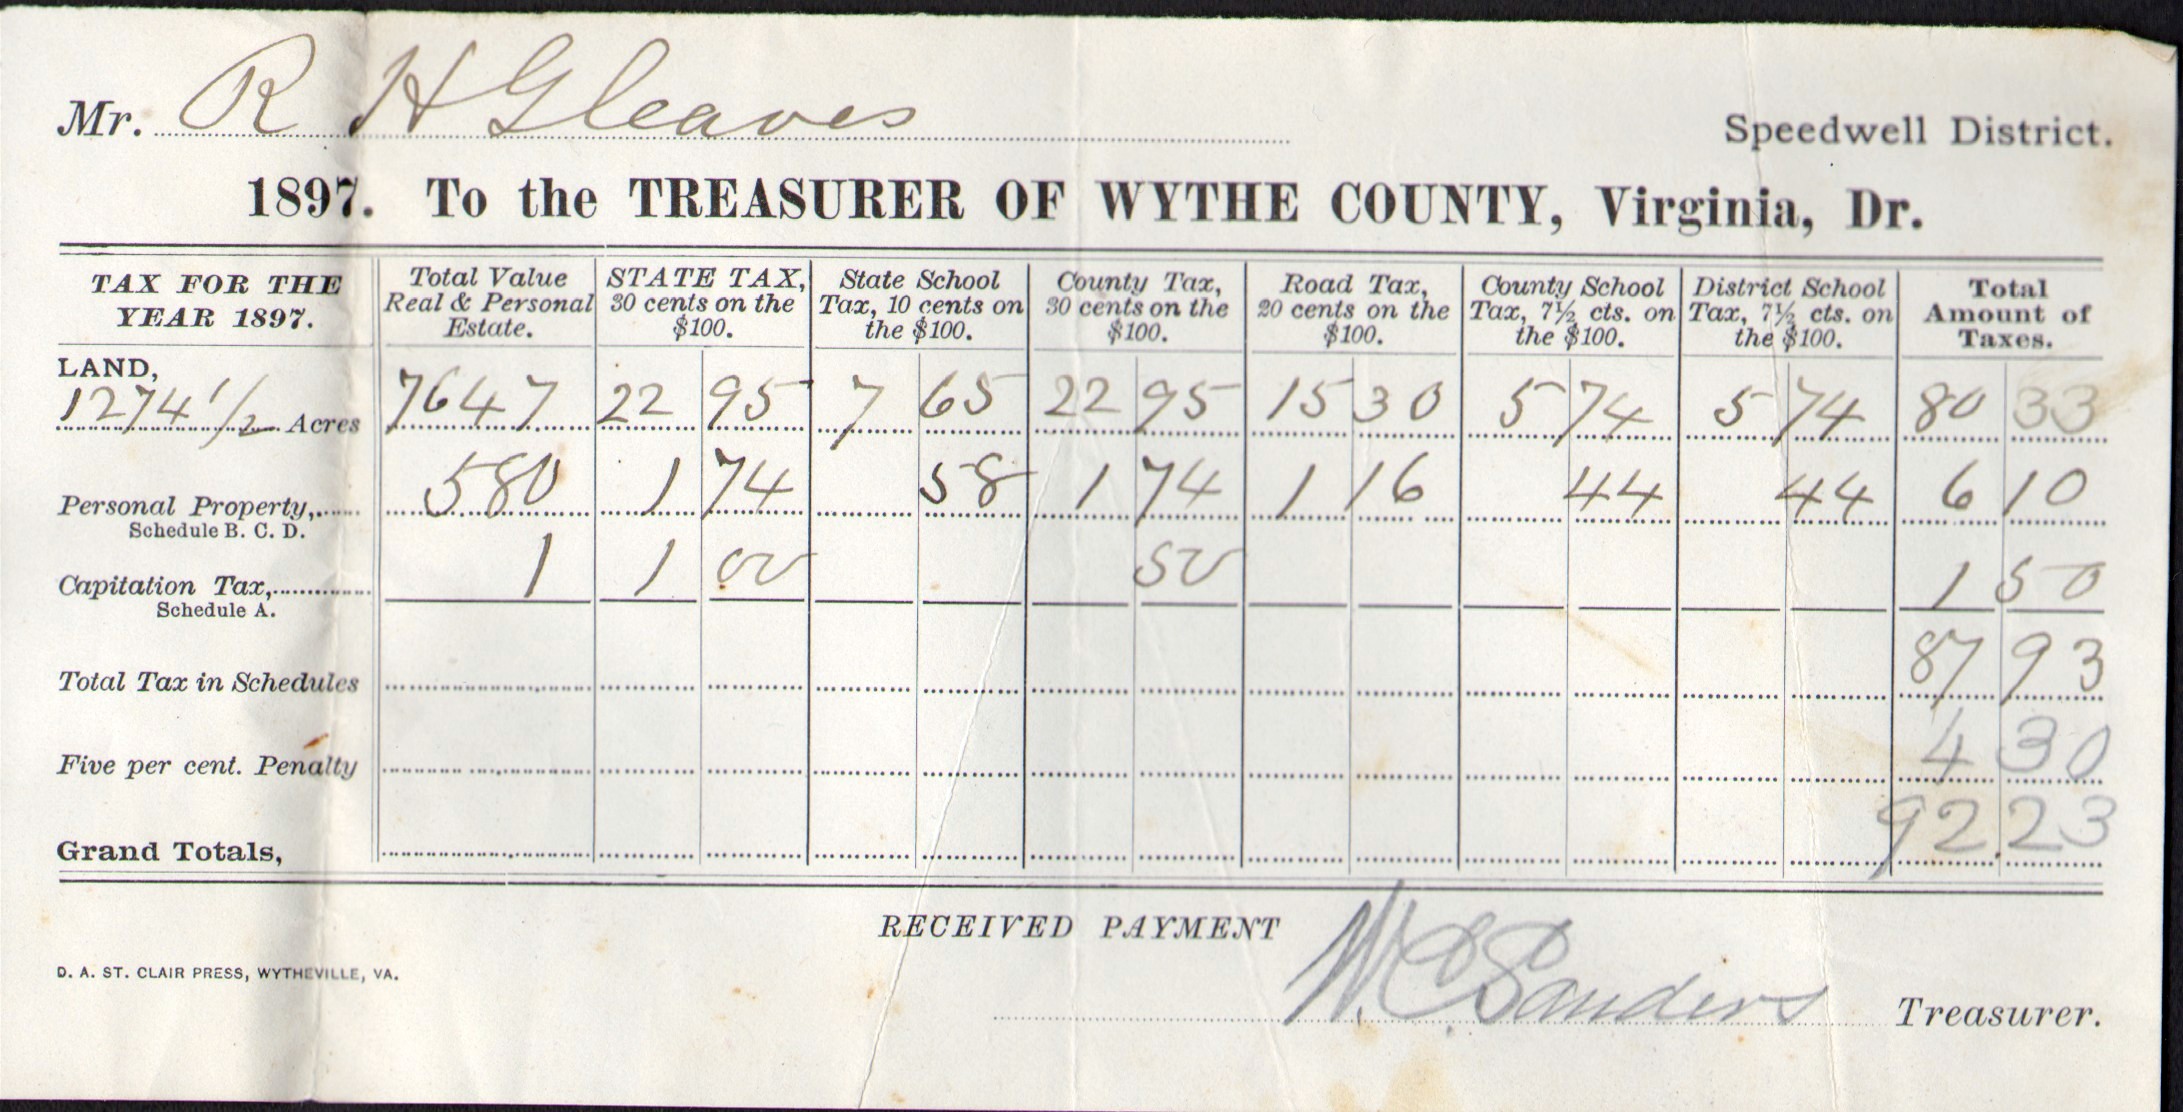 Mr. R H Gleaves
Speedwell District.
1897. To the TREASURER OF WYTHE COUNTY, Virginia, Dr.
TAX FOR THE YEAR 1897. Total Value Real & Personal Estate. STATE TAX, 30 cents on the $100. State School Tax, 10 cents on the $100. County Tax, 30 cents on the $100. Road Tax, 20 cents on the $100. County School Tax, 7½ cts. on the $100. District School Tax, 7½ cts. on the $100. Total Amount of Taxes.
LAND,
1274 1/2 Acres 7647 22 95 7 65 22 95 15 30 5 74 5 74 80 33
Personal Property, 580 1 74 58 1 74 1 16 44 44 6 10
Schedule B. C. D.
Capitation Tax, 1 1 00 50 1 50
Schedule A.
Total Tax in Schedules 87 93
Five per cent. Penalty 4 30
Grand Totals, 92.23
RECEIVED PAYMENT
D. A. ST. CLAIR PRESS, WYTHEVILLE, VA.
W. C. Sanders Treasurer.